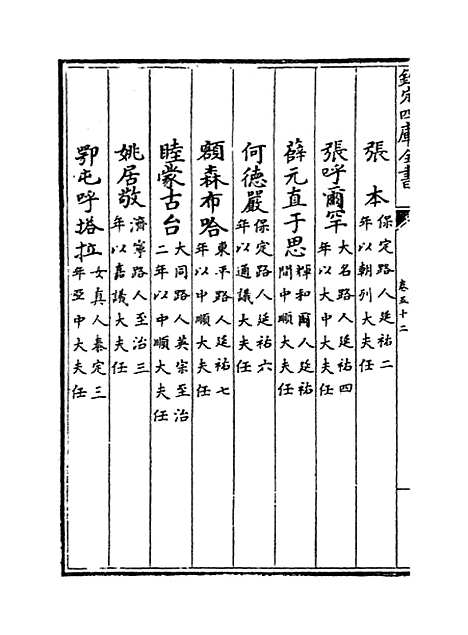 欽定四庫全書
卷五十二
張本保定路人延祐二
年以朝列大夫任
張呼爾罕大名路人延祐四
年以大中大夫任
薛元直于思輝和爾人延祐
間中順大夫任
何德嚴保定路人延祐六
年以通議大夫任
額森布哈東平路人延祐七
年以中順大夫任
睦蒙古台大同路人英宗至治
二年以中順大夫任
姚居敬濟寧路人至治三
年以嘉議大夫任
鄂屯呼塔拉女真人泰定三
年亞中大夫任